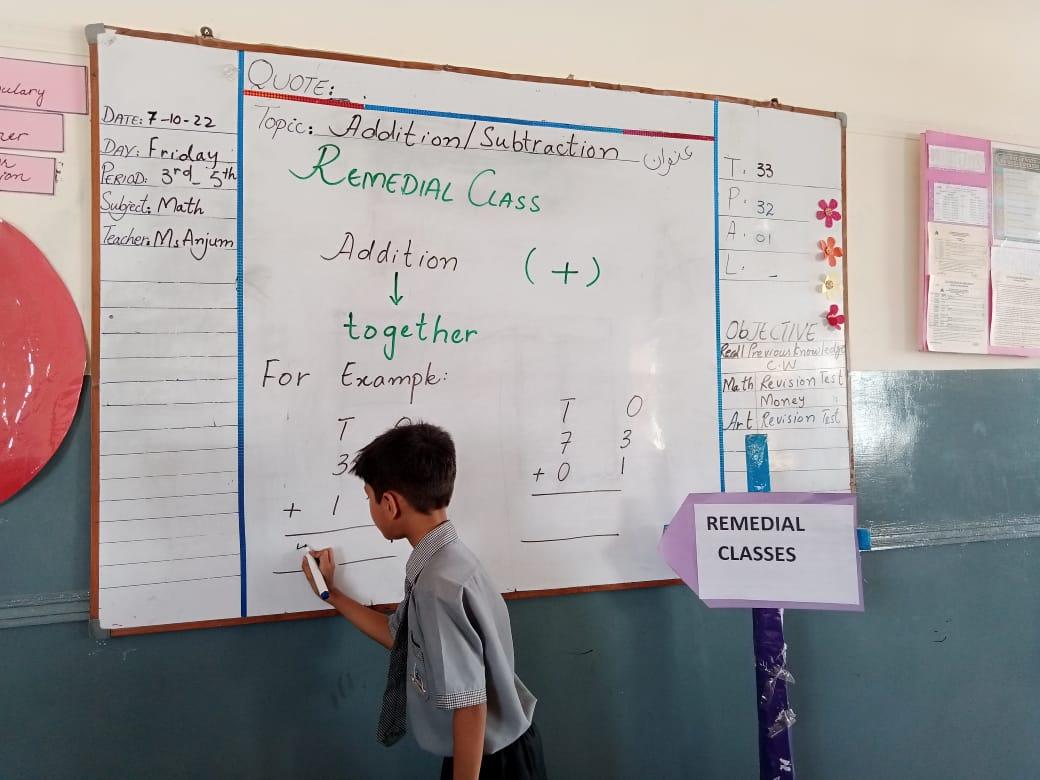 ulary
DATE: 7-10-22
DAY: Friday
PERIOD: 3rd_ 5th
Subject: Math
Teacher: Ms Anjum
QUOTE:
Topic: Addition/Subtraction عنوان
REMEDIAL CLASS
Addition (+)
↓
together
For Example:
T
3
+ 1
4
T O
7 3
+ 0 1
T. 33
P. 32
A. 01
L. -
ObJECTIVE
Recall Previous Knowledge
C.W
Math Revision Test
Money
Art Revision Test
REMEDIAL
CLASSES